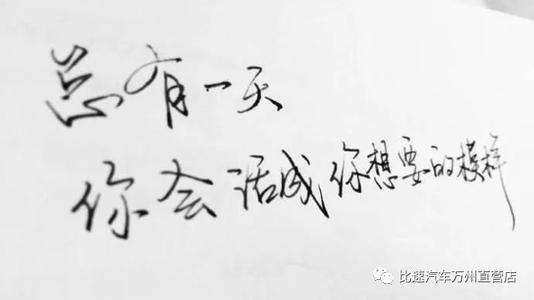 总有一天
你会活成你想要的模样
比速汽车万州直营店